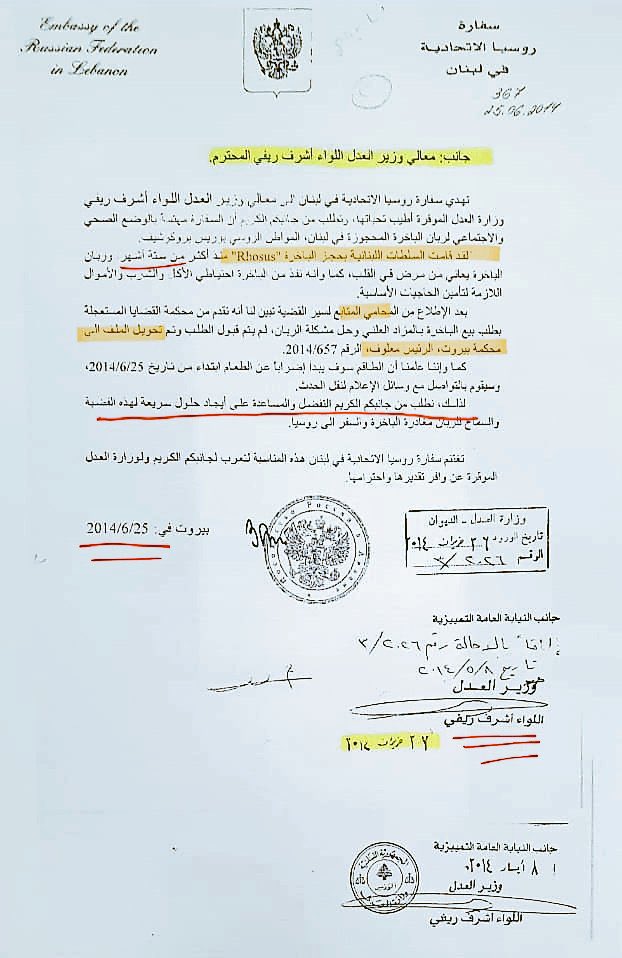 Embassy of the
Russian Federation
in Lebanon
سفارة
روسيا الاتحادية
في لبنان
367
25.06.2014
جانب: معالي وزير العدل اللواء أشرف ريفي المحترم.
تهدي سفارة روسيا الاتحادية في لبنان الى معالي وزير العدل اللواء أشرف ريفي
وزارة العدل الموقرة أطيب تحياتها، وتطلب من جانبكم الكريم أن السفارة مهتمة بالوضع الصحي
والاجتماعي لربان الباخرة المحجوزة في لبنان، المواطن الروسي بوريس بروكوشيف.
لقد قامت السلطات اللبنانية بحجز الباخرة "Rhosus" منذ أكثر من ستة أشهر وربان
الباخرة يعاني من مرض في القلب، كما وأنه نفذ من الباخرة احتياطي الأكل والشرب والأموال
اللازمة لتأمين الحاجيات الأساسية.
بعد الإطلاع من المحامي المتابع لسير القضية تبين لنا أنه تقدم من محكمة القضايا المستعجلة
بطلب بيع الباخرة بالمزاد العلني وحل مشكلة الربان، لم يتم قبول الطلب وتم تحويل الملف الى
محكمة بيروت، الرئيس معلوف، الرقم 2014/657.
كما وإننا علمنا أن الطاقم سوف يبدأ إضراباً عن الطعام ابتداء من تاريخ 2014/6/25،
وسيقوم بالتواصل مع وسائل الإعلام لنقل الحدث.
لذلك، نطلب من جانبكم الكريم التفضل والمساعدة على أيجاد حلول سريعة لهذه القضية
والسماح للربان مغادرة الباخرة والسفر الى روسيا.
تغتنم سفارة روسيا الاتحادية في لبنان هذه المناسبة لتعرب لجانبكم الكريم ولوزارة العدل
الموقرة عن وافر تقديرها واحترامها.
بيروت في: 2014/6/25
وزارة العدل - الديوان
تاريخ الورود ٢٦ حزيران ٢٠١٤
الرقم ٣/٢٠٢٦
جانب النيابة العامة التمييزية
بالاحالة رقم ٣/٢٠٢٦
تاريخ ٢٠١٤/٥/٨
وزير العدل
اللواء أشرف ريفي
٢٧ حزيران ٢٠١٤
جانب النيابة العامة التمييزية
٨ أيار ٢٠١٤
وزير العدل
اللواء أشرف ريفي